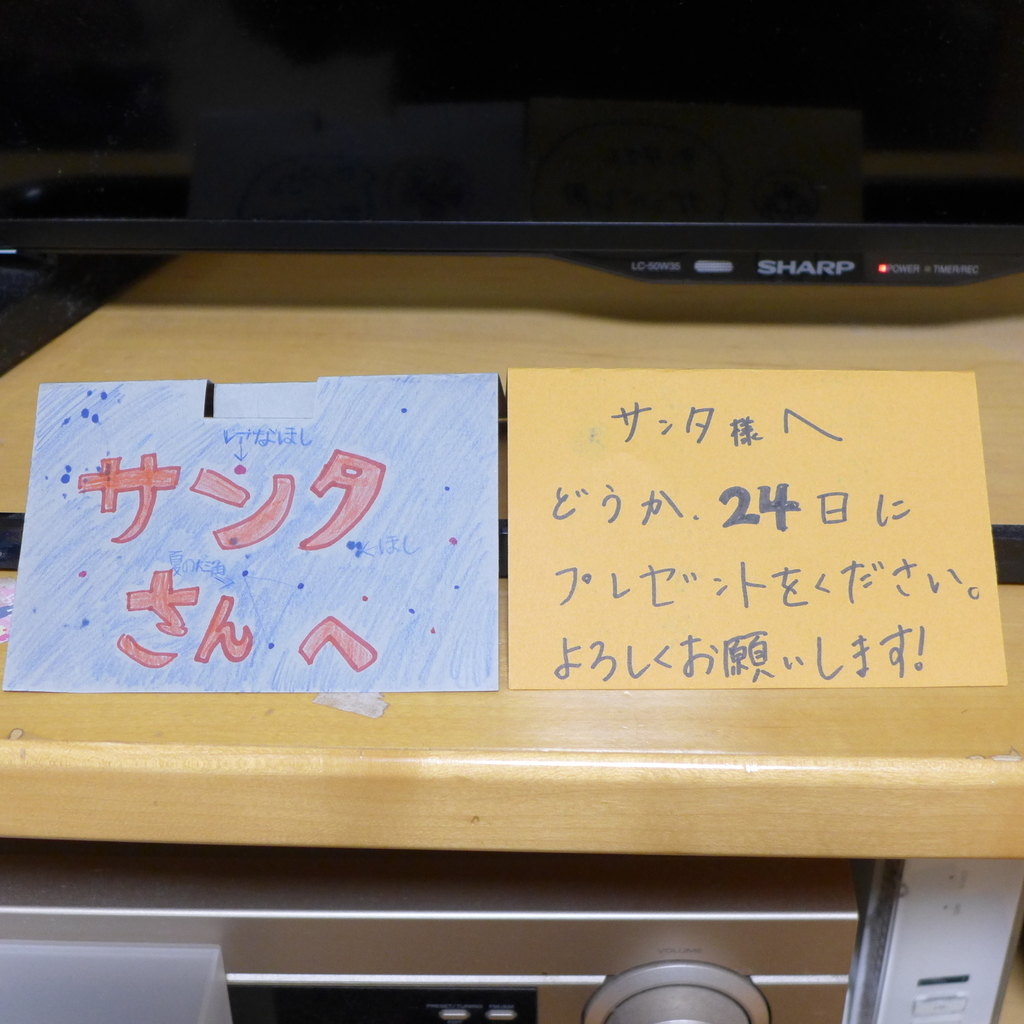 LC-50W35
SHARP
POWER
TIMER/REC
レアなほし
サンタ
ほし
さんへ
サンタ様へ
どうか、24日に
プレゼントをください。
よろしくお願いします!
VOLUME